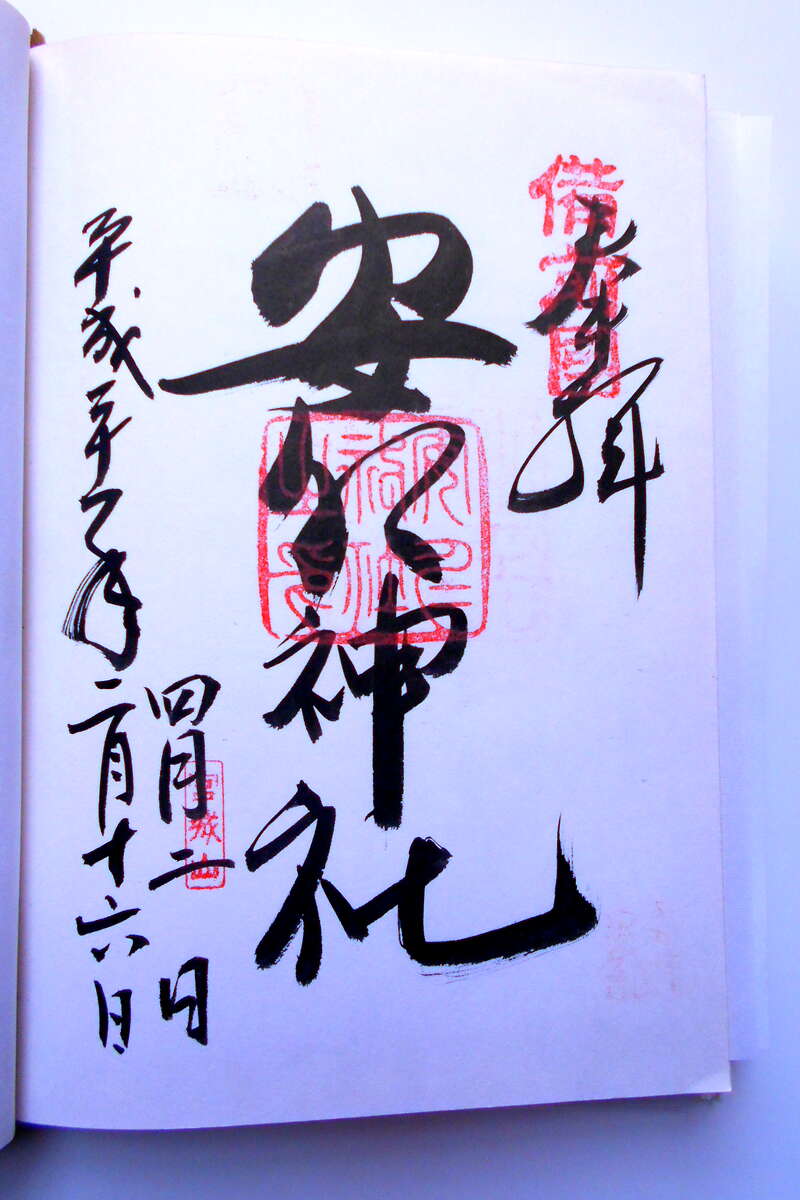 備前国
奉拝
安仁神社
宮城山
四月二日
平成二十二年二月十六日